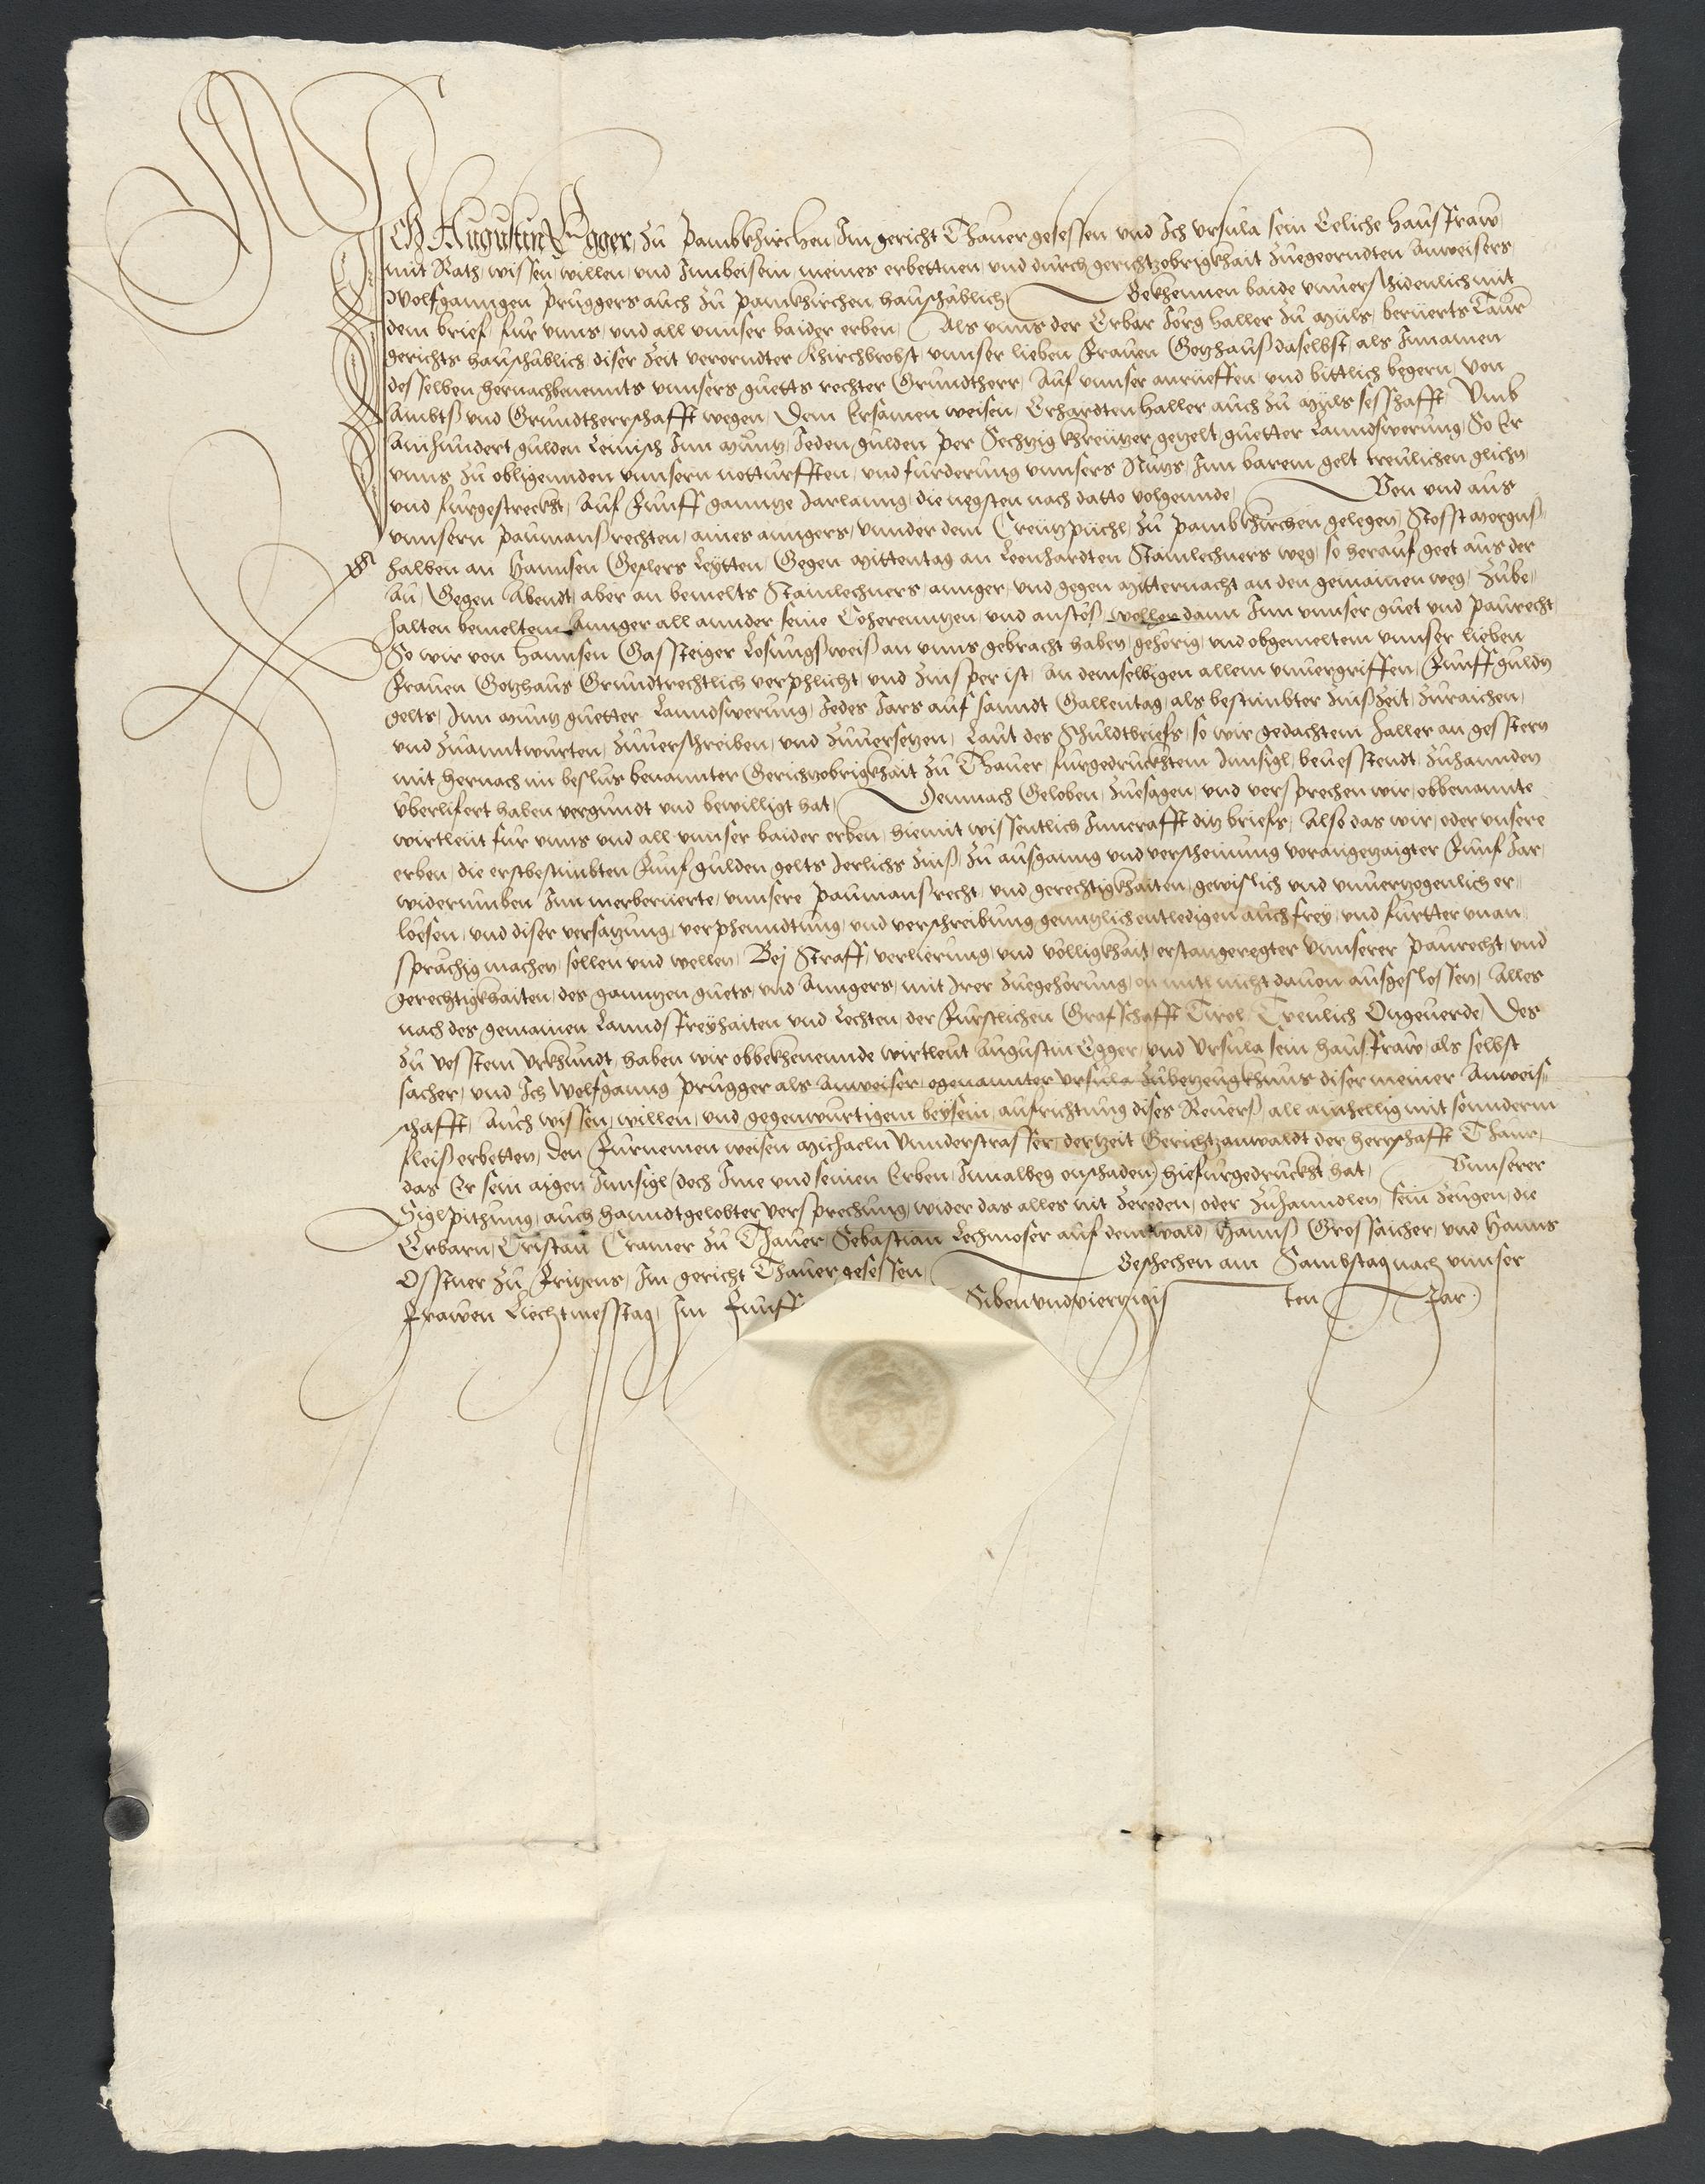 Ich Augustin Egger, zu Pambkhirchen, Im gericht Thauer gesessen, und Ich Ursula sein Eeliche hausfraw,
mit Rath, wissen, willen, und Innbeisein, meines erbettnen, und durch gerichtzobrigkhait zuegeorndten Anweisers,
Wolfganngen Pruggers auch zu Pamkhirchen, haushablich, Bekhennen baide unuerschidenlich mit
dem brief, fur unns, und all unnser baider erben, Als unns der Erbar Jörg Haller zu Mils, beruerts Taur
gerichts haushablich, diser zeit verorndter Khirchbrobst, unnser lieben Frauen Gotzhauß daselbst, als Innamen
desselben, hernachbenennts unnsers guetts rechter Grundtherr, Auf unnser anrüeffen, und bittlich begern, von
Ambts und Grundtherrschafft wegen, Dem Ersamen weisen, Erhardten Haller auch zu Mils seshafft, Umb
Ainhundert gulden Reinisch Inn Muntz, Jeden gulden per Sechtzig khreützer getzelt, guetter Lanndswerung, So Er
unns zu obligennden unnsern notturfften, und furderung unnsers Nutzs, Inn barem gelt treulichen glichen,
und furgestreckht, Auf Funff ganntze Jarlanng, die negsten nach datto volgennde, Von und aus
unnsern Paumansrechten, aines anngers, unnder dem Creützpüchl, zu Pambkhirchen gelegen, Stosst morgns,
halben an Hannsen Geslers Leytten, Gegen Mittentag an Leonhardten Stainlechners weg, so herauf geet aus der
Au, Gegen Abendt, aber an bemelts Stainlechners, annger, und gegen Mitternacht an den gemainen weg, zube,,
halten bemeltem Annger all annder seine Coherenntzen, und anstöß, wellher dann Inn unnser guet und Paurecht,
So wir von Hannsen Gassteiger Losungsweiß an unns gebracht haben, gehörig, und obgemeltem unnser lieben
Frauen Gotzhaus Grundtrechtlich verphlicht, und zinsper ist, An demselbigen allem unuergriffen, Funff guldn
gelts, Inn Muntz guetter Lanndswerung, Jedes Jars auf sanndt Gallentag, als bestimbter zinßzeit, zuraichen,
und zuanntwurten, zuuerschreiben, und zuuersetzen, Laut des Schuldtbriefs, so wir gedachtem Haller an gesstern
mit hernach im beslus benannter Gerichtzobrigkhait zu Thauer, furgedruckhtem Innsigl, beuesstendt, zuhannden
uberlifert haben vergundt und bewilligt hat, Demnach Geloben, zuesagen, und versprechen wir, obbenannte
wirtleut fur unns und all unnser baider erben, hiemit wissentlich Inncrafft ditz briefs, Also das wir, oder unsere
erben, die erstbestimbten Funf gulden gelts Jerlichs zinß, zu ausganng und verscheinung vorangetzaigter Funf Jar,
widerumben Inn merberüerte, unnsere Paumansrecht, und gerechtigkhaiten, gewislich und unuertzogenlich er,,
loesen, und diser versatzung, verphenndtung, und verschreibung genntzlich entledigen auch frey, und furtter unan,,
sprachig machen, sollen und wellen, Bej Straff, verlierung, und völligkhait, erstangeregter unnserer Paurecht, und
gerechtigkhaiten, des ganntzen guets, und Anngers, mit Irer zuegehorung, nichts nicht dauon ausgeslossen, Alles
nach des gemainen Lannds Freyhaiten und Rechten, der Furstlichen Grafschafft Tirol, Treulich Ongeuerde, Des
zu vesstem Urkhundt, haben wir obbekhenennde wirtleut Augustin Egger, und Ursula sein hausfraw, als selbst
sacher, und Ich Wolfganng Prugger als Anweiser, egenannter Ursula, zubetzeugkhnus diser meiner Anweis,,
schafft, Auch wissen, willen, und gegenwurtigem beysein, aufrichtung dises Reuers, all ainhellig mit sonnderm
fleiß erbetten, den Furnemen weisen Michaeln Unnderstrasser, dertzeit Gerichtzanwaldt der herrschafft Thaur,
das Er sein aigen Innsigl (doch Ime und seinen Erben, Innalweg onschaden) hiefurgedruckht hat, Unnserer
Siglpithung, auch hanndtgelobter versprechung, wider das alles nit zereden, oder zuhanndlen, sein zeugen, die
Erbarn, Cristan Cramer zu Thauer, Sebastian Lechmoser auf dem Wald, Hanns Grossaicher, und Hanns
Osstner zu Fritzens, Im gericht Thauer gesessen, Beschechen am Sambstag nach unnser
Frawen Liechtmesstag, Im Funff Sibenundviertzigisten Jar